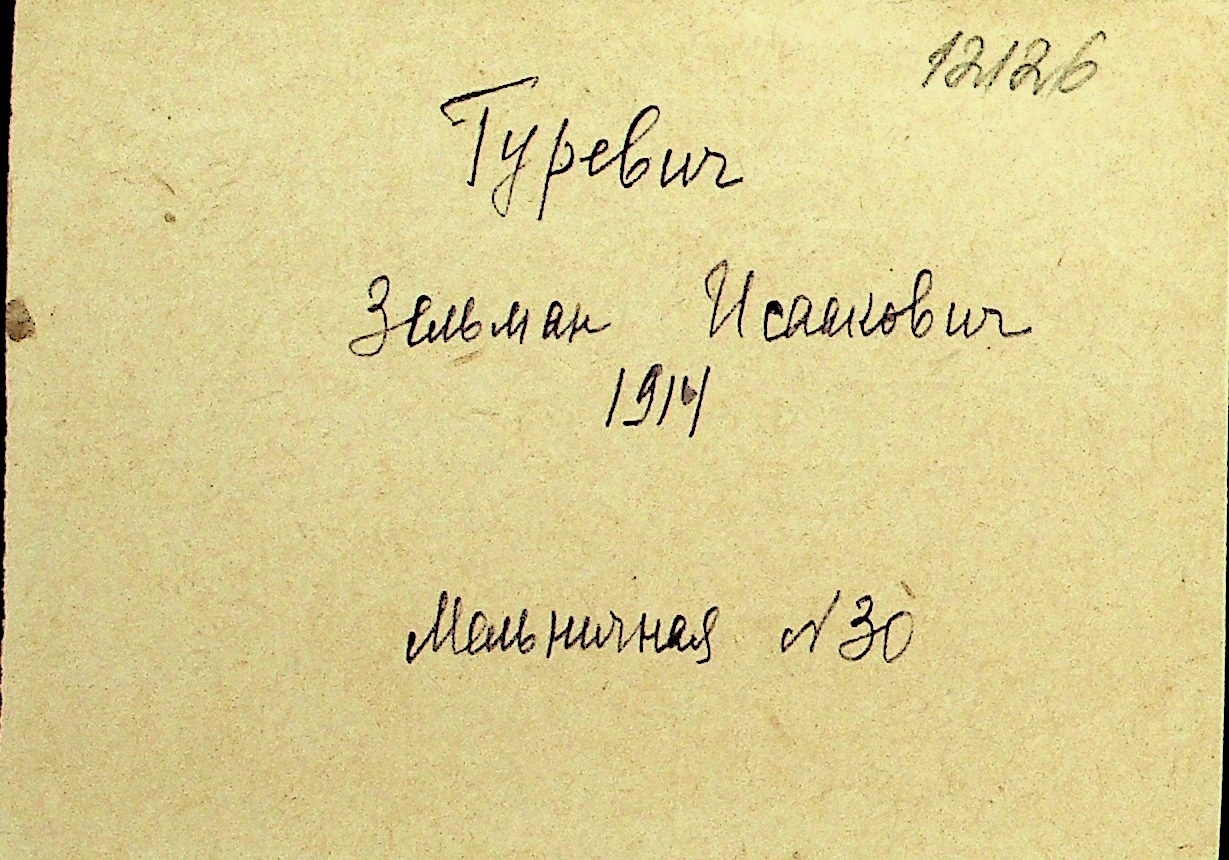 12126
Гуревич
Зельман Исаакович
1914
Мельничная N 30